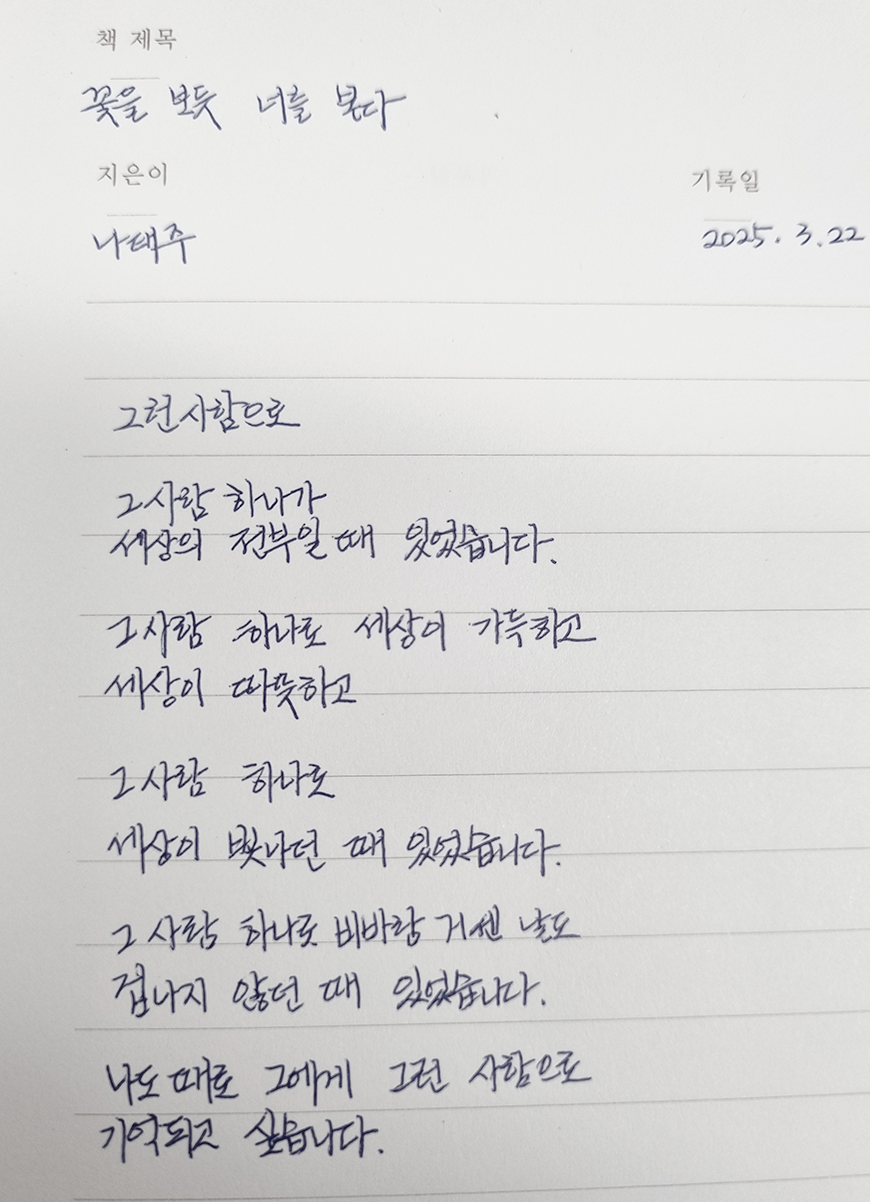 책 제목
꽃을 보듯 너를 본다
지은이
기록일
나태주
2025. 3. 22
그런 사람으로
그 사람 하나가
세상의 전부일 때 있었습니다.
그 사람 하나로 세상이 가득하고
세상이 따뜻하고
그 사람 하나로
세상이 빛나던 때 있었습니다.
그 사람 하나로 비바람 거센 날도
겁나지 않던 때 있었습니다.
나도 때로 그에게 그런 사람으로
기억되고 싶습니다.